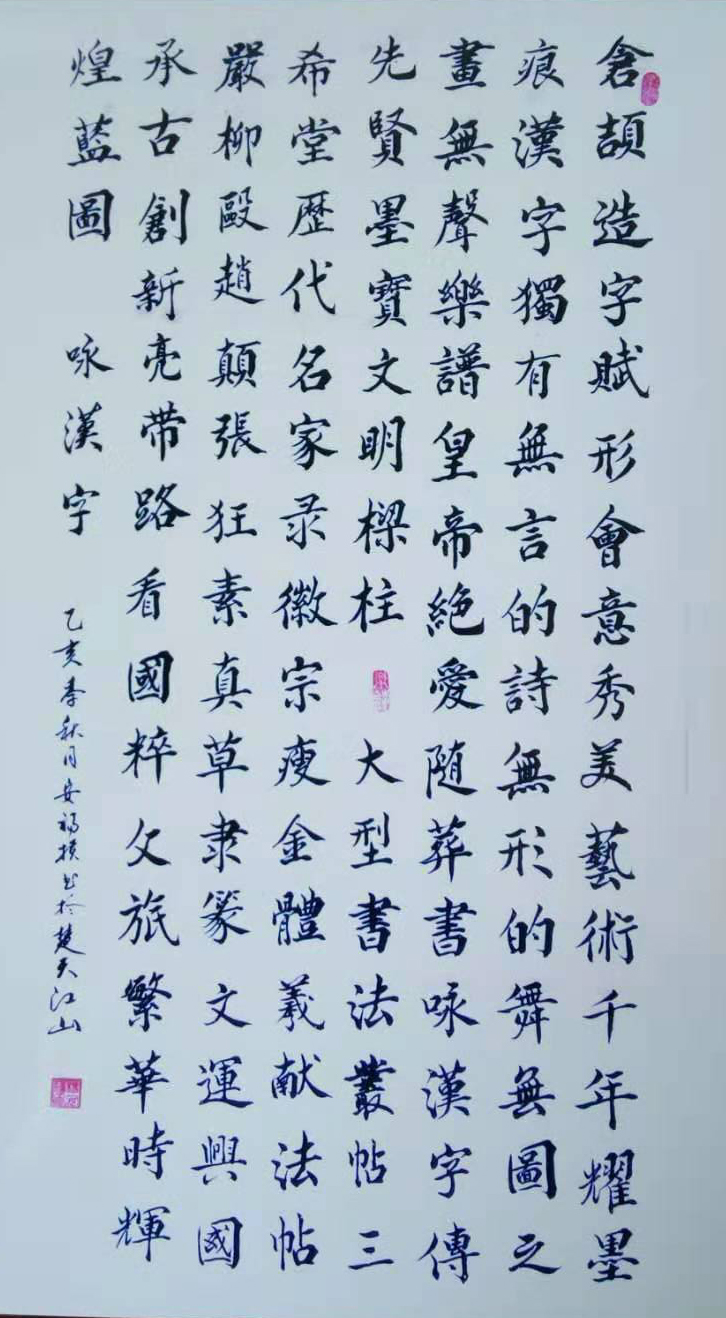 倉頡造字賦形會意秀美藝術千年耀墨
痕漢字獨有無言的詩無形的舞無圖之
畫無聲樂譜皇帝絕愛随葬書咏漢字傳
先賢墨寶文明樑柱 大型書法叢帖三
希堂歷代名家录徽宗瘦金體羲献法帖
嚴柳毆趙顛張狂素真草隶篆文運興國
承古創新亮带路看國粹文旅繁華時輝
煌藍圖 咏漢字
乙亥季秋月安福 书於楚天江山